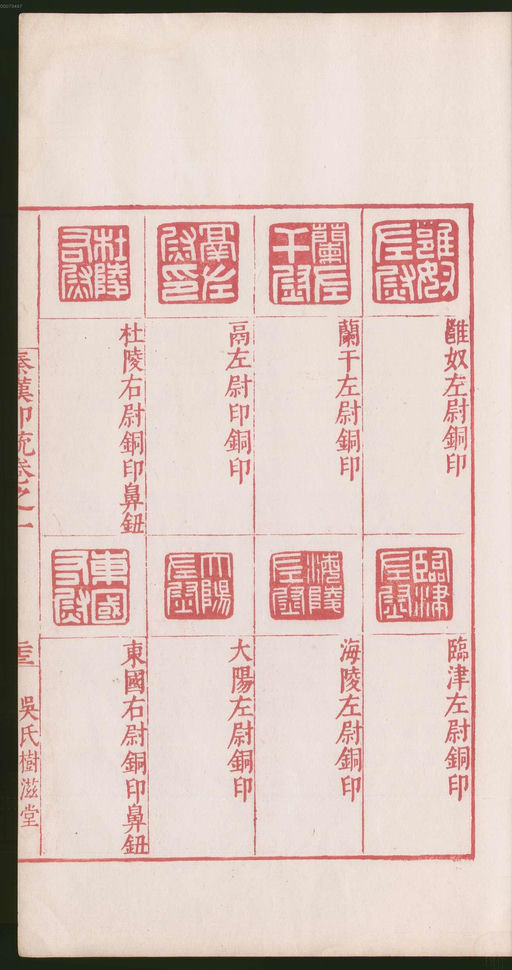 雝奴左尉
雝奴左尉銅印
蘭干左尉
蘭干左尉銅印
鬲左尉印
鬲左尉印銅印
杜陵右尉
杜陵右尉銅印鼻鈕
臨津左尉
臨津左尉銅印
海陵左尉
海陵左尉銅印
大陽左尉
大陽左尉銅印
東國右尉
東國右尉銅印鼻鈕
秦漢印統卷之一
吳氏樹滋堂
00079487